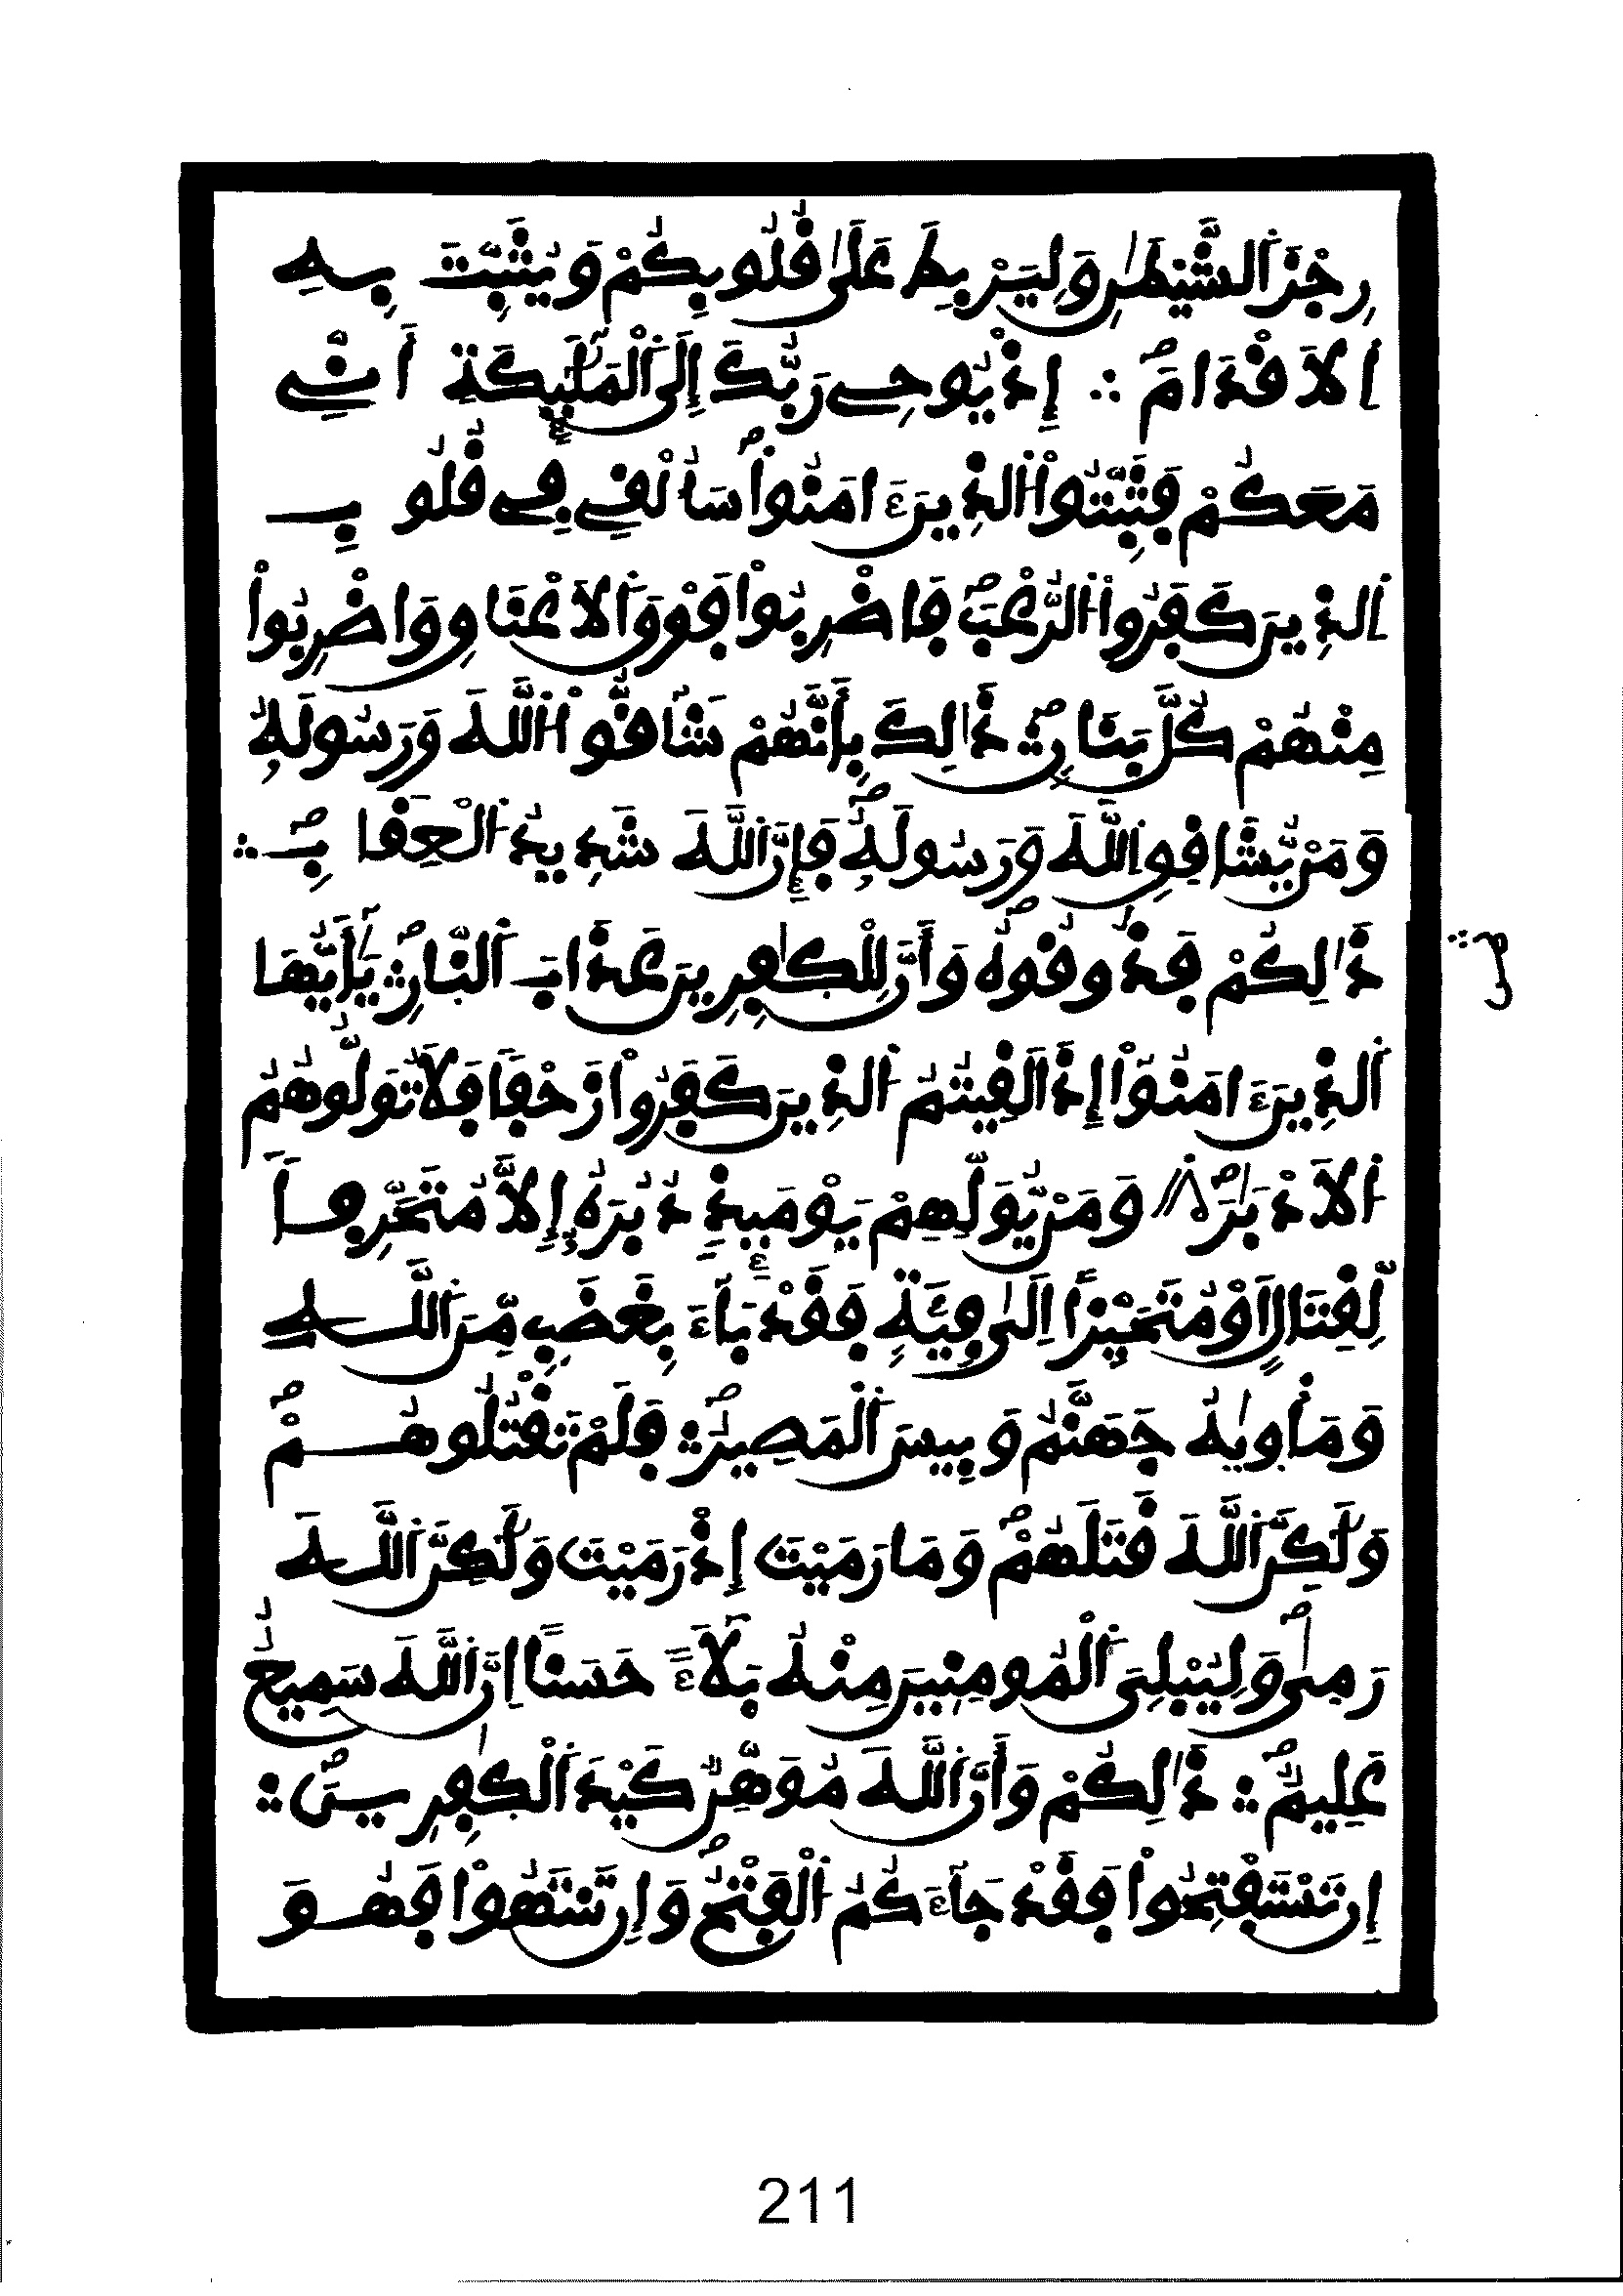 رِجْزَ اَ۬لشَّيْطَٰنِ وَلِيَرْبِطَ عَلَىٰ قُلُوبِكُمْ وَيُثَبِّتَ بِهِ
اِ۬لَاقْدَامَ ∴ إِذْ يُوحِے رَبُّكَ إِلَى اَ۬لْمَلَٰٓئِكَةِ أَنِّے
مَعَكُمْ فَثَبِّتُواْ اُ۬لذِينَ ءَامَنُواْ سَأُلْقِے فِے قُلُوبِ
اِ۬لذِينَ كَفَرُواْ اُ۬لرُّعْبَ فَاضْرِبُواْ فَوْقَ اَ۬لَاعْنَاقِ وَاضْرِبُواْ
مِنْهُمْ كُلَّ بَنَانٖ ∴ ذَٰلِكَ بِأَنَّهُمْ شَآقُّواْ اُ۬للَّهَ وَرَسُولَهُۥ
وَمَنْ يُّشَاقِقِ اِ۬للَّهَ وَرَسُولَهُۥ فَإِنَّ اَ۬للَّهَ شَدِيدُ اُ۬لْعِقَابِ ∴
ذَٰلِكُمْ فَذُوقُوهُ وَأَنَّ لِلْكَٰفِرِينَ عَذَابَ اَ۬لنّ۪ارِ ∴ يَٰٓأَيُّهَا
اَ۬لذِينَ ءَامَنُوٓاْ إِذَا لَقِيتُمُ اُ۬لذِينَ كَفَرُواْ زَحْفاٗ فَلَا تُوَلُّوهُمُ
اُ۬لَادْبَٰرَ ∴ وَمَنْ يُّوَلِّهِمْ يَوْمَئِذٖ دُبُرَهُۥٓ إِلَّا مُتَحَرِّفاٗ
لِّقِتَالٍ اَوْ مُتَحَيِّزاً اِلَىٰ فِئَةٖ فَقَدْ بَآءَ بِغَضَبٖ مِّنَ اَ۬للَّهِ
وَمَأْو۪يٰهُ جَهَنَّمُ وَبِيسَ اَ۬لْمَصِيرُ ∴ فَلَمْ تَقْتُلُوهُمْ
وَلَٰكِنَّ اَ۬للَّهَ قَتَلَهُمْ وَمَا رَمَيْتَ إِذْ رَمَيْتَ وَلَٰكِنَّ اَ۬للَّهَ
رَمىٰ وَلِيُبْلِيَ اَ۬لْمُومِنِينَ مِنْهُ بَلَآءً حَسَناً اِنَّ اَ۬للَّهَ سَمِيعٌ
عَلِيمٞ ∴ ذَٰلِكُمْ وَأَنَّ اَ۬للَّهَ مُوَهِّنٞ كَيْدَ اَ۬لْكٰ۪فِرِينَ ∴
إِن تَسْتَفْتِحُواْ فَقَدْ جَآءَكُمُ اُ۬لْفَتْحُ وَإِن تَنتَهُواْ فَهُوَ
211